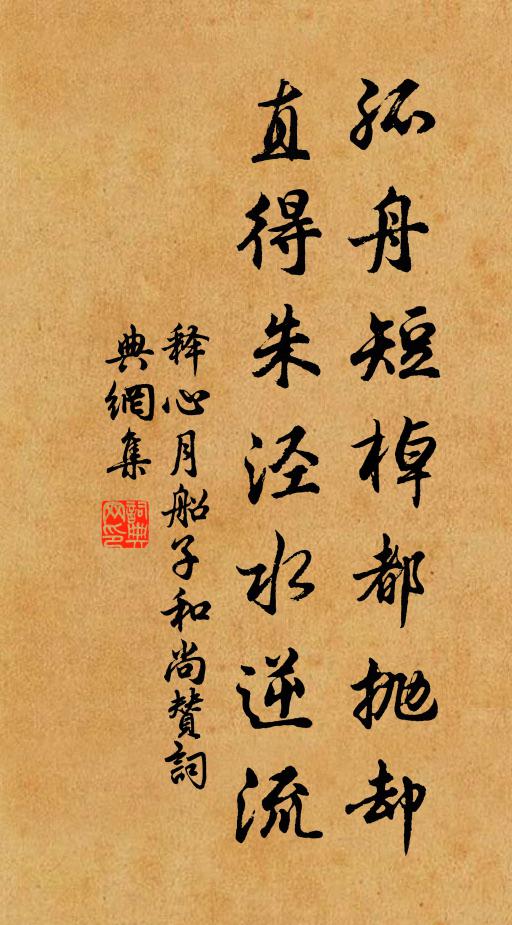 孤舟短棹都抛却
直得朱泾水逆流
释心月船子和尚赞詞
典網集
詞典網印